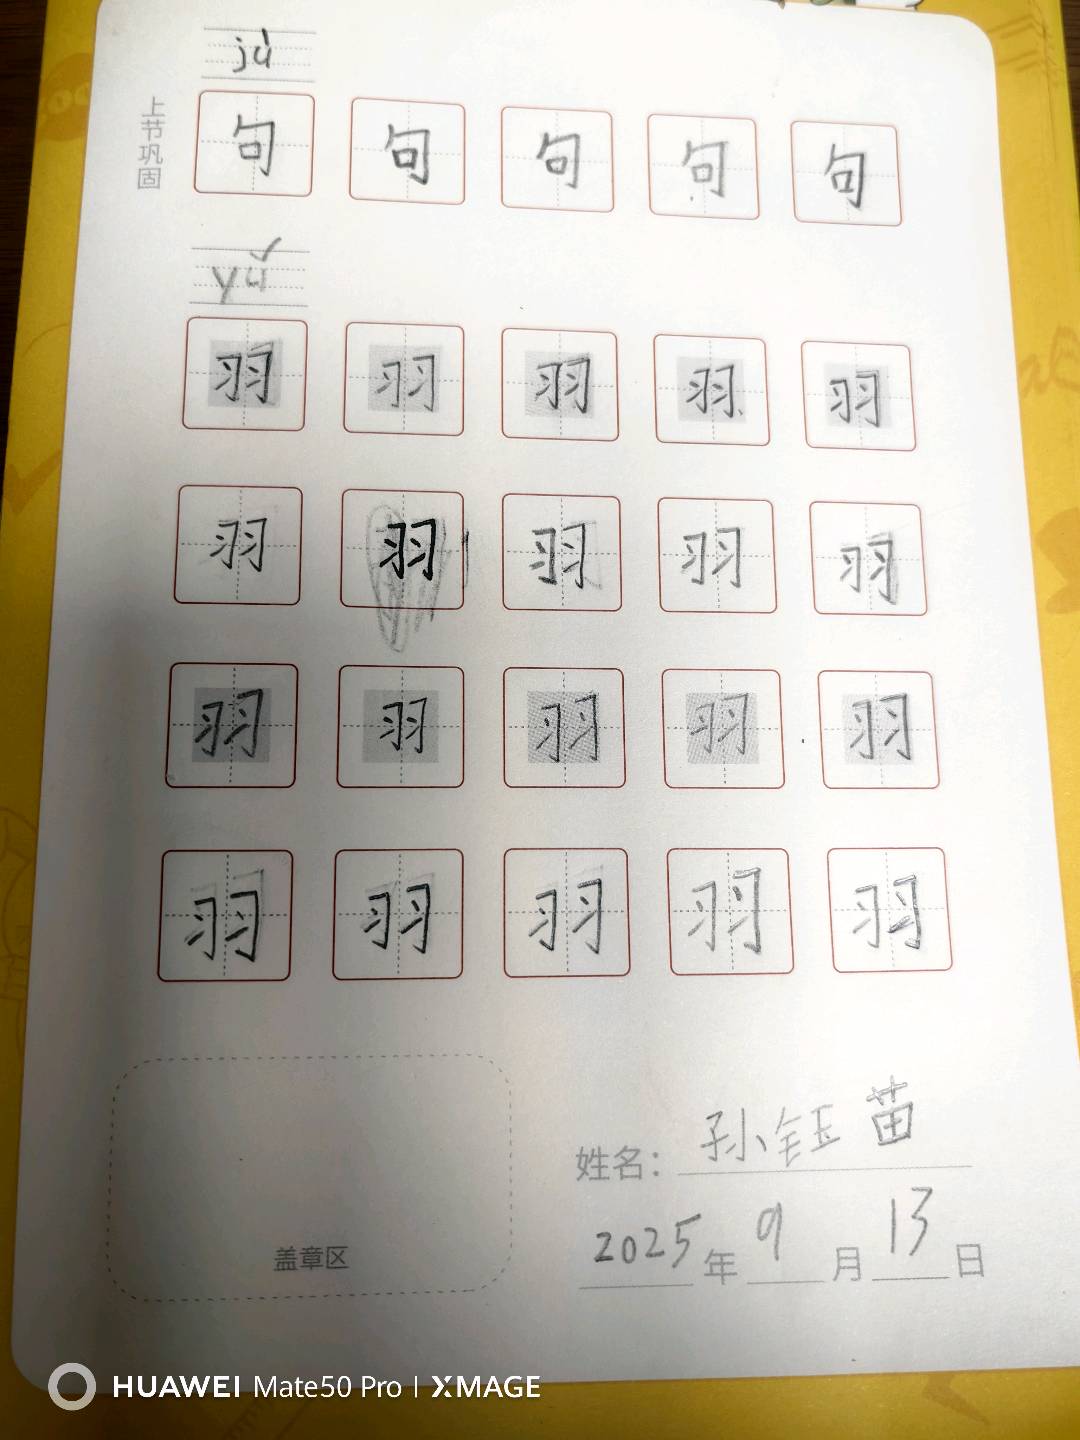 jù
上节巩固
句 句 句 句 句
yǔ
羽 羽 羽 羽 羽
羽 羽 羽 羽 羽
羽 羽 羽 羽 羽
羽 羽 羽 羽 羽
姓名：孙钰苗
盖章区
2025年9月13日
HUAWEI Mate50 Pro | XMAGE